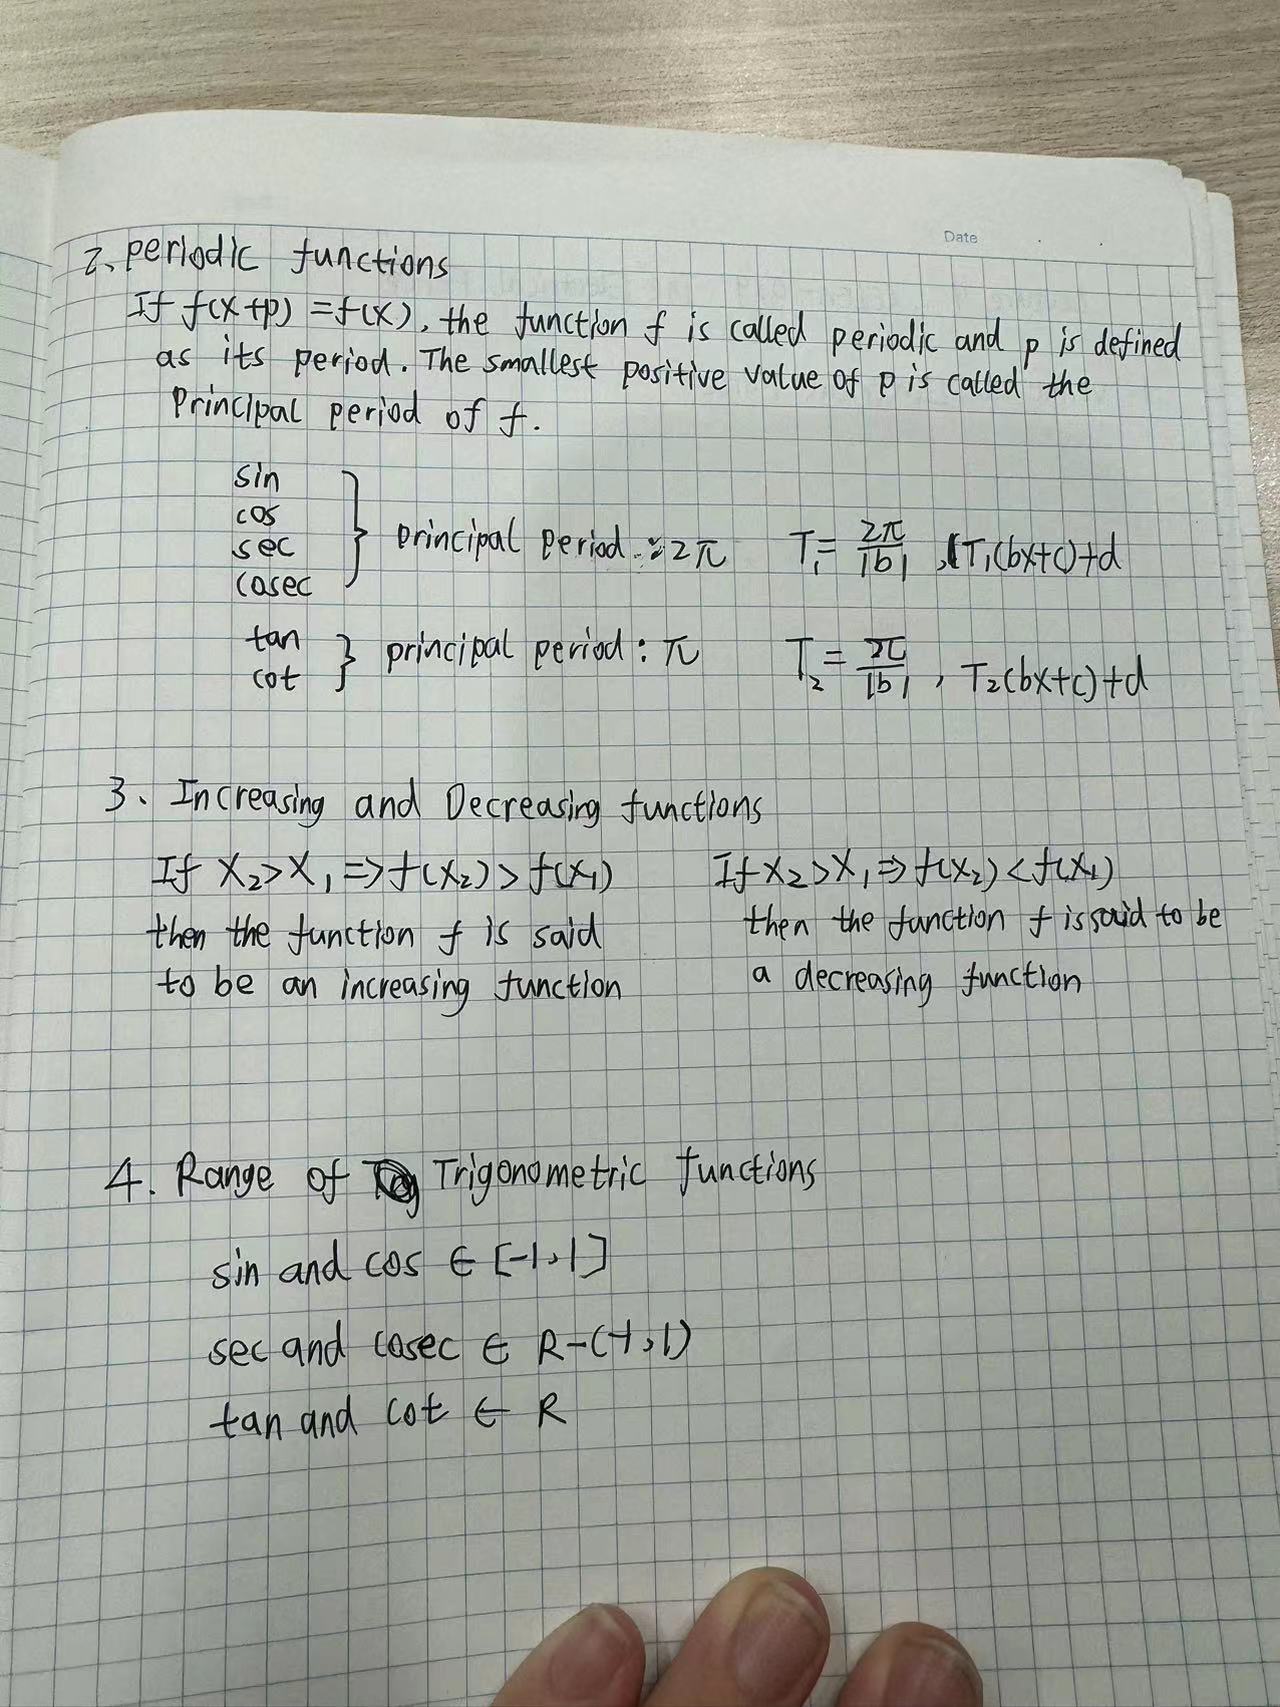 Date
2、periodic functions
If f(x+p)=f(x), the function f is called periodic and p is defined
as its period. The smallest positive value of p is called the
principal period of f.
sin
cos
sec
cosec
principal period : 2π
T₁ = 2π/|b| , T₁(bx+c)+d
tan
cot
principal period : π
T₂ = π/|b| , T₂(bx+c)+d
3、Increasing and Decreasing functions
If x₂>x₁ => f(x₂)>f(x₁)
then the function f is said
to be an increasing function
If x₂>x₁ => f(x₂)<f(x₁)
then the function f is said to be
a decreasing function
4. Range of Trigonometric functions
sin and cos ∈ [-1,1]
sec and cosec ∈ R-(-1,1)
tan and cot ∈ R